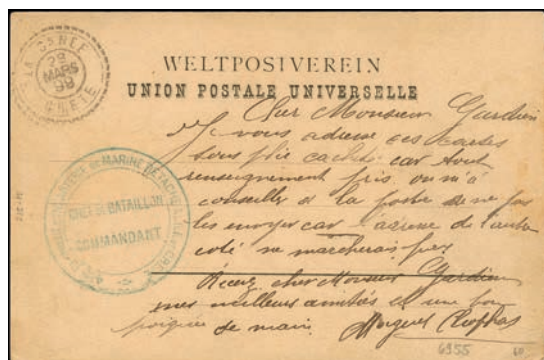 LA CANÉE
29
MARS
98
CRÈTE
WELTPOSTVEREIN
UNION POSTALE UNIVERSELLE
Cher Monsieur Gardien
Je vous adresse ces cartes
sous plie cacheté car tout
renseignement pris on m'a
conseillé à la poste de ne pas
les envoyer car l'adresse de l'autre
coté ne marcherais pas
Recevez cher Monsieur Gardien
mes meilleurs amitiés et une bonne
poignée de main
CHEF DE BATAILLON
COMMANDANT
6955